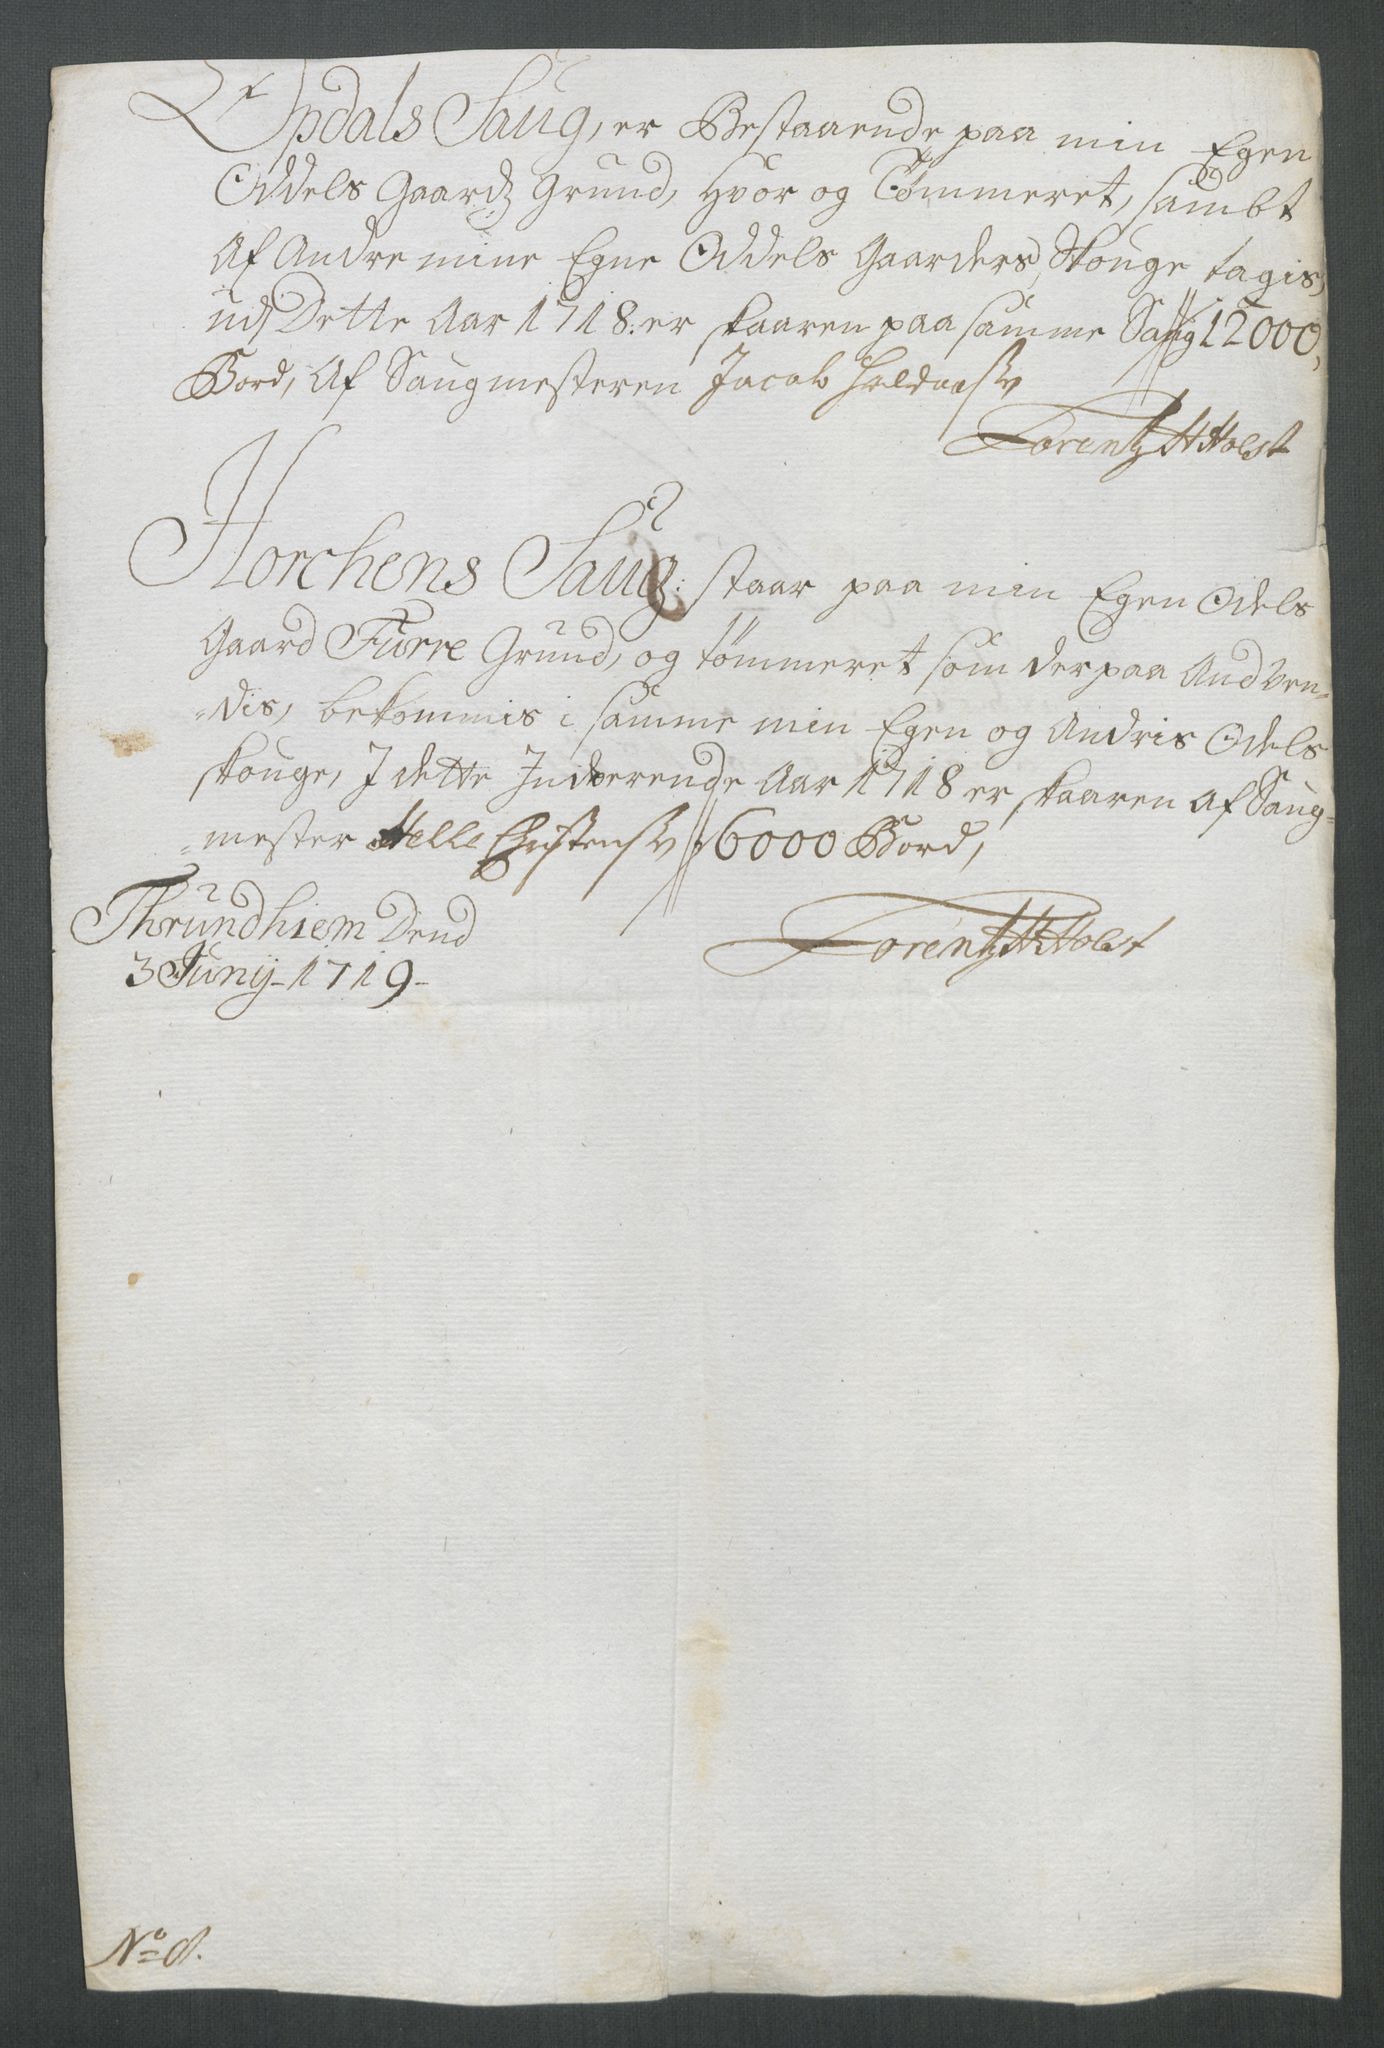 Opdals Saug, er Bestaaende paa min Egen
Oddels Gaards Grund, hvor og Tømmeret, sambt
Af Andre mine Egne Oddels Gaarders, Skouge tagis,
udj Dette Aar 1718. er skaaren paa samme Saug 12000,
Bord, Af Saugmesteren Jacob
Lorentz HHolst
Horchens Saug: staar paa min Egen Odels
Gaard Furre Grund, og tømmeret som derpaa Andven-
-dis, bekommis i samme min Egen og Andris Odels
skouge, I dette Indverende Aar 1718 er skaaren af Saug-
-mester Helle Christensøn 6000 Bord,
Thrundhiem Dend
3 Junij - 1719 -
Lorentz HHolst
No